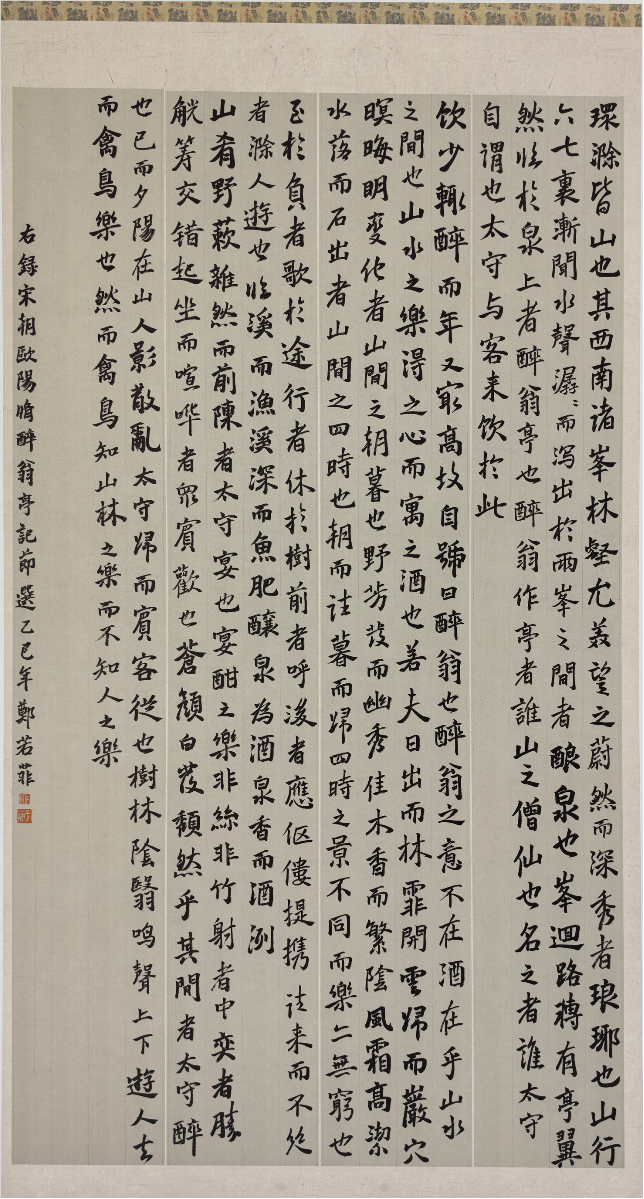 環滁皆山也其西南诸峯林壑尤美望之蔚然而深秀者琅琊也山行
六七裏漸聞水聲潺ミ而泻出於兩峯之間者酿泉也峯迴路轉有亭翼
然临於泉上者醉翁亭也醉翁作亭者誰山之僧仙也名之者誰太守
自谓也太守与客来饮於此
饮少輒醉而年又冣高故自號曰醉翁也醉翁之意不在酒在乎山水
之間也山水之樂淂之心而寓之酒也若夫日出而林霏開雲归而巖穴
暝晦明變化者山間之朝暮也野芳發而幽秀佳木香而繁陰風霜高潔
水落而石出者山間之四時也朝而往暮而歸四時之景不同而樂亦無窮也
至於負者歌於途行者休於樹前者呼後者應伛僂提携往来而不绝
者滁人遊也临溪而漁溪深而魚肥釀泉為酒泉香而酒洌
山肴野蔌雜然而前陳者太守宴也宴酣之樂非絲非竹射者中奕者勝
觥筹交错起坐而喧哗者眾賓歡也蒼顏白髮頹然乎其間者太守醉
也已而夕陽在山人影散亂太守歸而賓客從也樹林陰翳鸣聲上下遊人去
而禽鳥樂也然而禽鳥知山林之樂而不知人之樂
右録宋朝歐陽脩醉翁亭記節選乙巳年鄭若菲